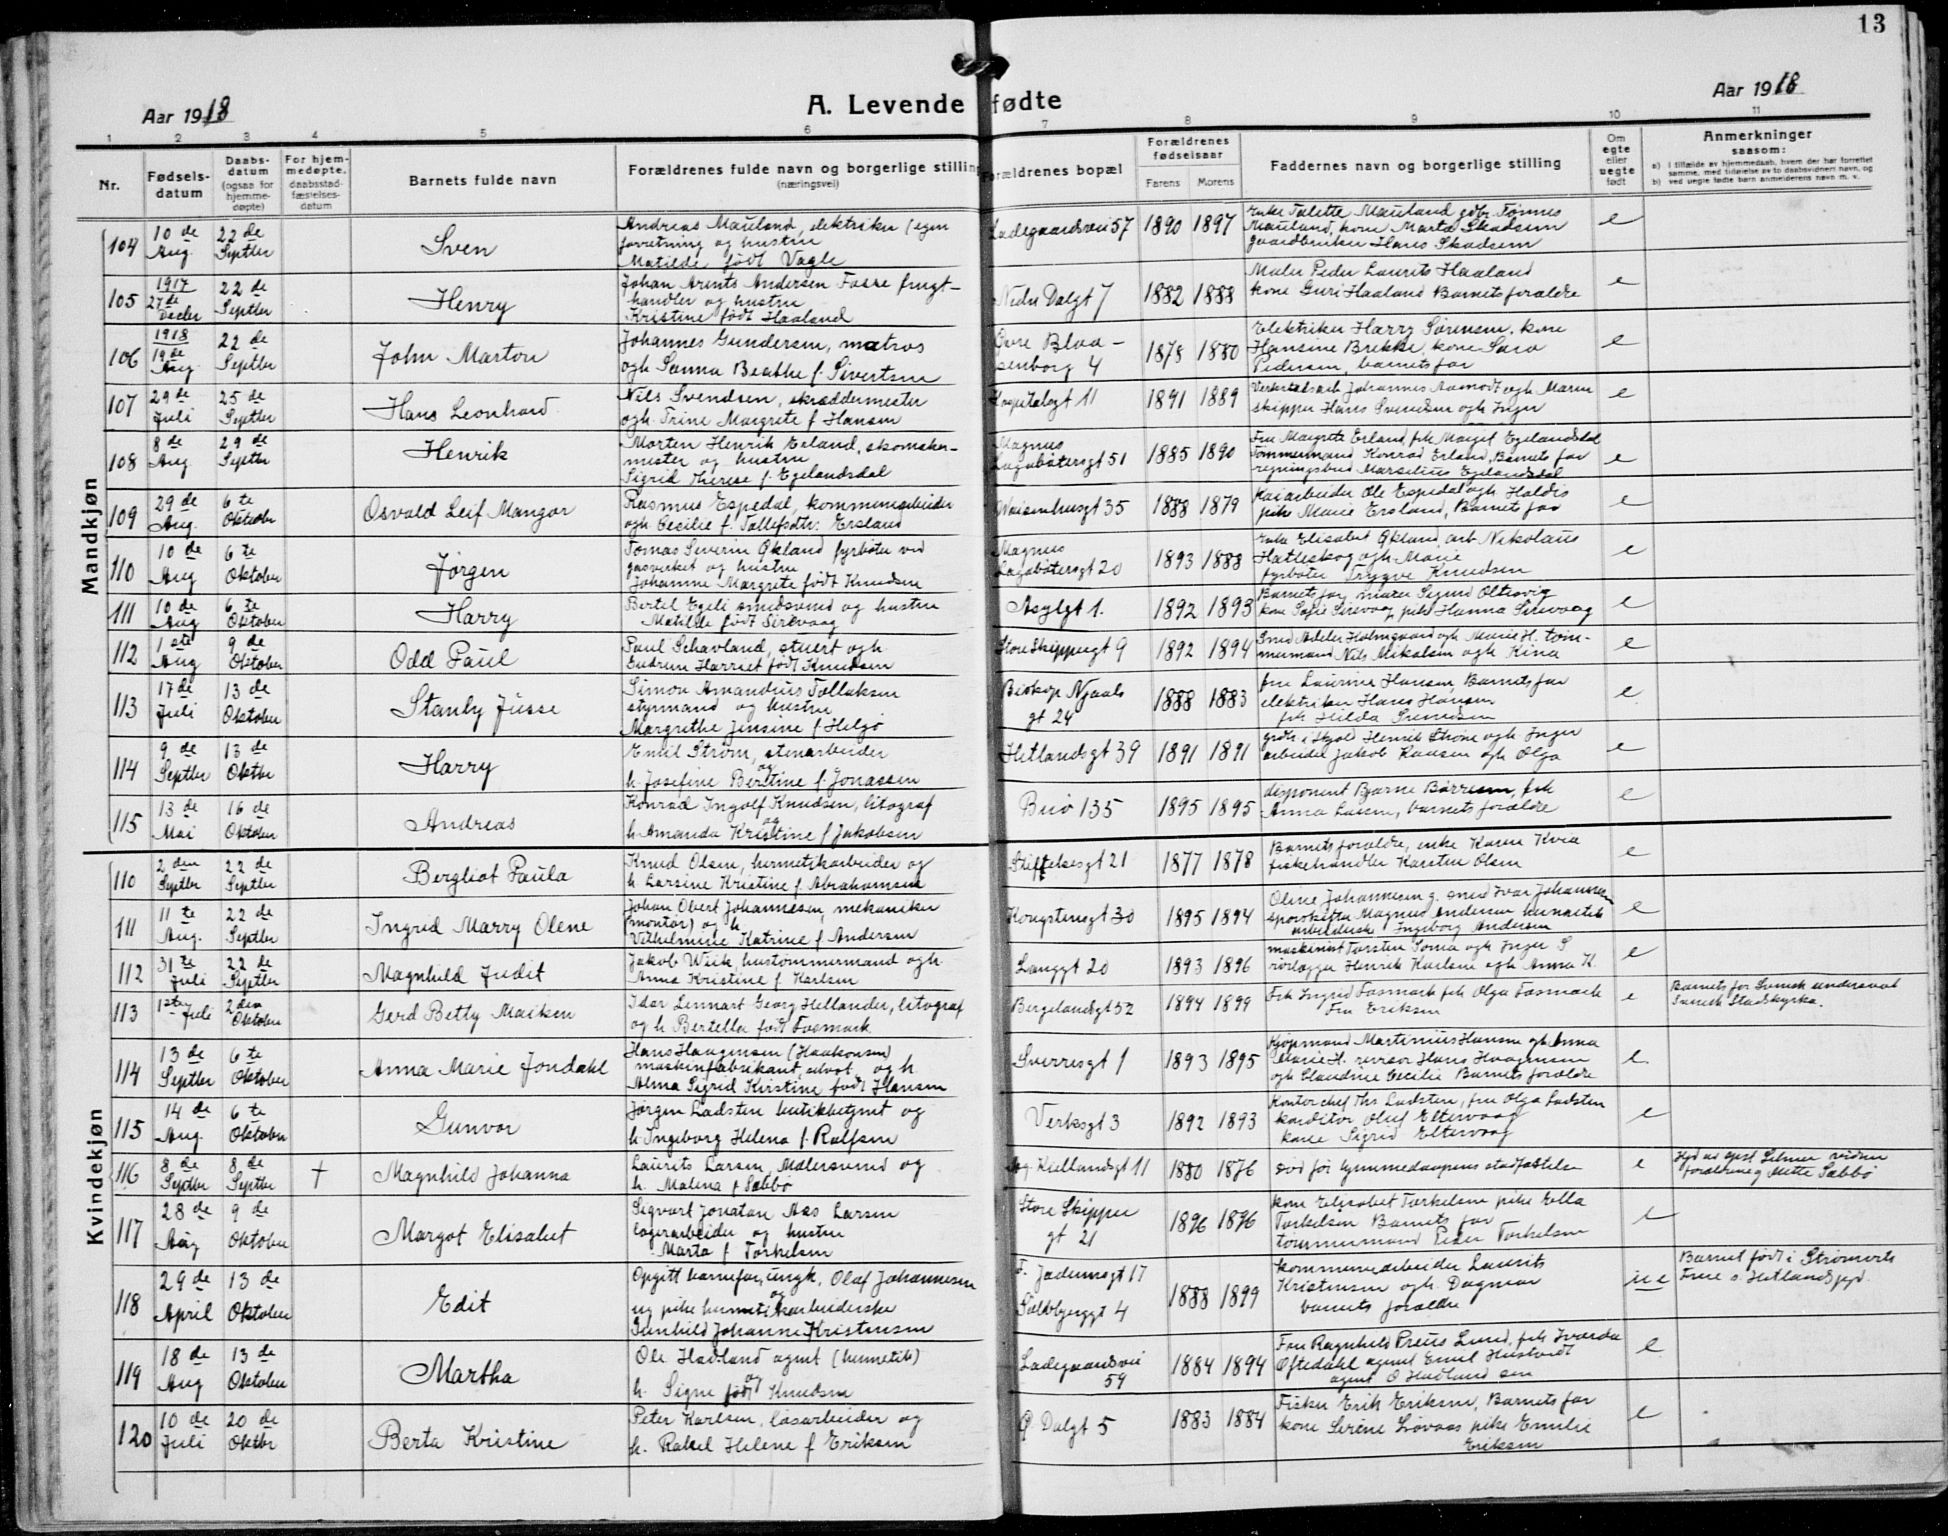 13
Aar 1918
A. Levende fødte
Aar 1918
1 2 3 4 5 6 7 8 9 10 11
Nr.
Fødsels-
datum
Daabs-
datum
(ogsaa for
hjemme-
døpte)
For hjem-
medøpte.
daabsstad-
fæstelses-
datum
Barnets fulde navn
Forældrenes fulde navn og borgerlige stilling
(næringsvei)
Forældrenes bopæl
Forældrenes
fødselsaar
Farens Morens
Faddernes navn og borgerlige stilling
Om
egte
eller
uegte
født
Anmerkninger
saasom:
a) I tilfælde av hjemmedaab, hvem der har forrettet
samme, med tilføielse av to daabsvidners navn, og
b) ved uegte fødte børn anmelderens navn m. v.
Mandkjøn
104 10de Aug. 22de Septbr Sven
Andreas Mauland, elektriker (egen
forretning og hustru
Matilde født Vagle
Ladegaardsvei 57 1890 1897
Enke Talette Mauland gdbr. Tønnes
Mauland, kone Marta Skadsem
gaardbruker Hans Skadsem
e
105 1917 27de Decbr 22de Septbr Henry
Johan Arents Andersen Fosse frugt-
handler og hustru
Kristine født Haaland
Nedr Dalgt 7 1882 1888
Maler Peder Laurits Haaland
kone Guri Haaland Barnets forældre
e
106 1918 19de Aug. 22de Septbr John Marton
Johannes Gundersen, matros
ogh Sanna Beathe f. Sivertsen
Øvre Blaa-
senborg 4 1878 1880
Elektriker Harry Sørensen, kone
Hansine Brekke, kone Sara
Pedersen, barnets far
e
107 29de Juli 25de Septbr Hans Leonhard
Nils Svendsen, skræddermester
ogh. Trine Margrete f Hansen
Hospitalsgt 11 1891 1889
Verkstedsarb Johannes Aamodt ogh Maren
skipper Hans Svendsen ogh Inger
e
108 8de Aug 29de Septbr Henrik
Morten Henrik Erland, skomaker-
mester og hustru
Sigrid Therese f. Egelandsdal
Magnus
Lagabøtersgt 51 1885 1890
Fru Margrete Erland, frk Margit Egelandsdal
Tømmermand Konrad Erland, Barnets far
regningsbud Marselius Egelandsdal
e
109 29de Aug. 6te Oktober Osvald Leif Mangor
Rasmus Espedal, kommunearbeider
ogh. Cecilie f. Tollefsdtr. Ersland
Waisenhusgt 35 1888 1879
Kaiarbeider Ole Espedal ogh Haldis
pike Marie Ersland, Barnets far
e
110 10de Aug 6te Oktober Jørgen
Tomas Severin Økland fyrbøter ved
gasverket og hustru
Johanne Margrete født Knudsen
Magnus
Lagabøtersgt 20 1893 1888
Enke Elisabet Økland, arb Nikolaus
Hatleskog ogh. Marie
fyrbøter Trygve Knudsen
e
111 10de Aug 6te Oktober Harry
Bertel Egeli smedsvend og hustru
Matilde født Sirevaag
Asylgt 1. 1892 1893
Barnets far, maler Sigurd Oltesvig
kone Sofie Sirevaag, pike Hanna Sirevaag
e
112 1ste Aug 9de Oktober Odd Paul
Paul Schavland, stuert ogh
Gudrun Harriet født Knudsen
Store Skippergt 9 1892 1894
Smed Adler Holmgaard ogh Marie H. tøm-
mermand Nils Mikalsen ogh Kina
e
113 17de Juli 13de Oktober Stanly Jusse
Simon Amandius Tollaksen
styrmand og hustru
Margrethe Jensine f Helgø
Biskop Njaals
gt 24 1888 1883
fru Laurine Hansen, Barnets far
elektriker Hans Hansen
frk Hilda Svendsen
e
114 9de Septbr 13de Oktbr Harry
Emil Strøm, stenarbeider
og
h. Josefine Berttine f. Jonassen
Hetlandsgt 39 1891 1891
grdb. i Skjold Henrik Strøm ogh Inger
arbeider Jakob Hansen ogh Olga
e
115 13de Mai 16de Oktober Andreas
Konrad Ingolf Knudsen, litograf
og
h. Amanda Kristine f Jakobsen
Buø 135 1895 1895
disponent Bjarne Børresen, frk
Anna Larsen, barnets forældre
e
Kvindekjøn
110 2den Septbr 22de Septbr Bergliot Paula
Knud Olsen, hermetikarbeider og
h. Larsine Kristine f. Abrahamsen
Stiftelsesgt 21 1877 1878
Barnets forældre, enke Karen Kvia
fiskehandler Karsten Olsen
e
111 11te Aug. 22de Septbr Ingrid Marry Olene
Johan Obert Johannesen, mekaniker
(montør) og h.
Vilhelmine Katrine f Andersen
Kongstensgt 30 1895 1894
Oline Johannesen g. smed Ivar Johannesen
Magnus Andersen hermetik
arbeiderske Ingeborg Andersen
e
112 31te Juli 22de Septbr Magnhild Judit
Jakob Wiik, hustømmermand ogh.
Anna Kristine f. Karlsen
Langgt 20 1893 1896
maskinist Torsten Soma ogh Inger S
rørlægger Henrik Karlsen ogh Anna K.
e
113 1ste Juli 2den Oktober Gerd Betty Maiken
Idar Lennart Georg Hellander, litograf
og h Bertella født Fosmark
Bergelandsgt 52 1894 1899
Frk Ingrid Fosmark frk Olga Fosmark
Fru Eriksen
e
Barnets far Svensk undersaat
Svensk Stadskyrka.
114 13de Septbr 6te Oktober Anna Marie Jondahl
Hans Haagensen (Haakonsen)
maskinfabrikant, og h
Alma Sigrid Kirstine født Hansen
Sverresgt 1 1893 1895
Kjøpmand Martinius Hansen ogh Anna
Marie H. revisor Hans Haagensen
ogh Claudine Cecilie Barnets forældre
e
115 14de Aug. 6te Oktober Gunvor
Jørgen Ladsten butikbetjent og
h. Ingeborg Helena f. Rolfsen
Verksgt 3 1892 1893
Kontorchef Ths Ladsten, fru Olga Ladsten
konditor Oluf Eltervaag
kone Sigrid Eltervaag
e
116 8de Septbr 8de Septbr † Magnhild Johanna
Laurits Larsen, Malersvend og
h. Malena f Sæbbø
Ag Kiellandsgt 11 1880 1876
død før hjemmedaapens stadfæstelse
e
forældrene og Mette Sæbbø
117 28de Aug 9de Oktober Margot Elisabet
Sigvart Jonatan Aas Larsen
lagerarbeider og hustru
Marta f Torkelsen
Store Skipper
gt 21 1896 1896
kone Elisabet Torkelsen pike Ella
Torkelsen Barnets far
tømmermand Peder Torkelsen
e
118 29de April 13de Oktober Edit
Opgitt barnefar, ungk. Olaf Johannesen
og
ug pike hermetikarbeiderske
Gunhild Johanne Kristensen
F. Jaderensgt 17
4 1888 1899
kommunearbeider Laurits
Kristensen ogh Dagmar
barnets forældre
ue
Barnet født i Strømvik
Frue s. Hetlands pgd.
119 18de Aug 13de Oktober Martha
Ole Hadland agent (hermetik)
og
h. Signe født Knudsen
Ladegaardsvei
59 1884 1894
Fru Ragnhild Preus Lund, frk Tvarda
Oftedahl agent Emil Hustvedt
agent O Hadland sen
e
120 10de Juli 20de Oktbr Berta Kristine
Peter Karlsen, løsarbeider og
h. Rakel Helene f Eriksen
Ø Dalgt 5 1883 1884
Fisker Erik Eriksen, Barnets far
kone Serene Løvaas pike Emilie
Eriksen
e